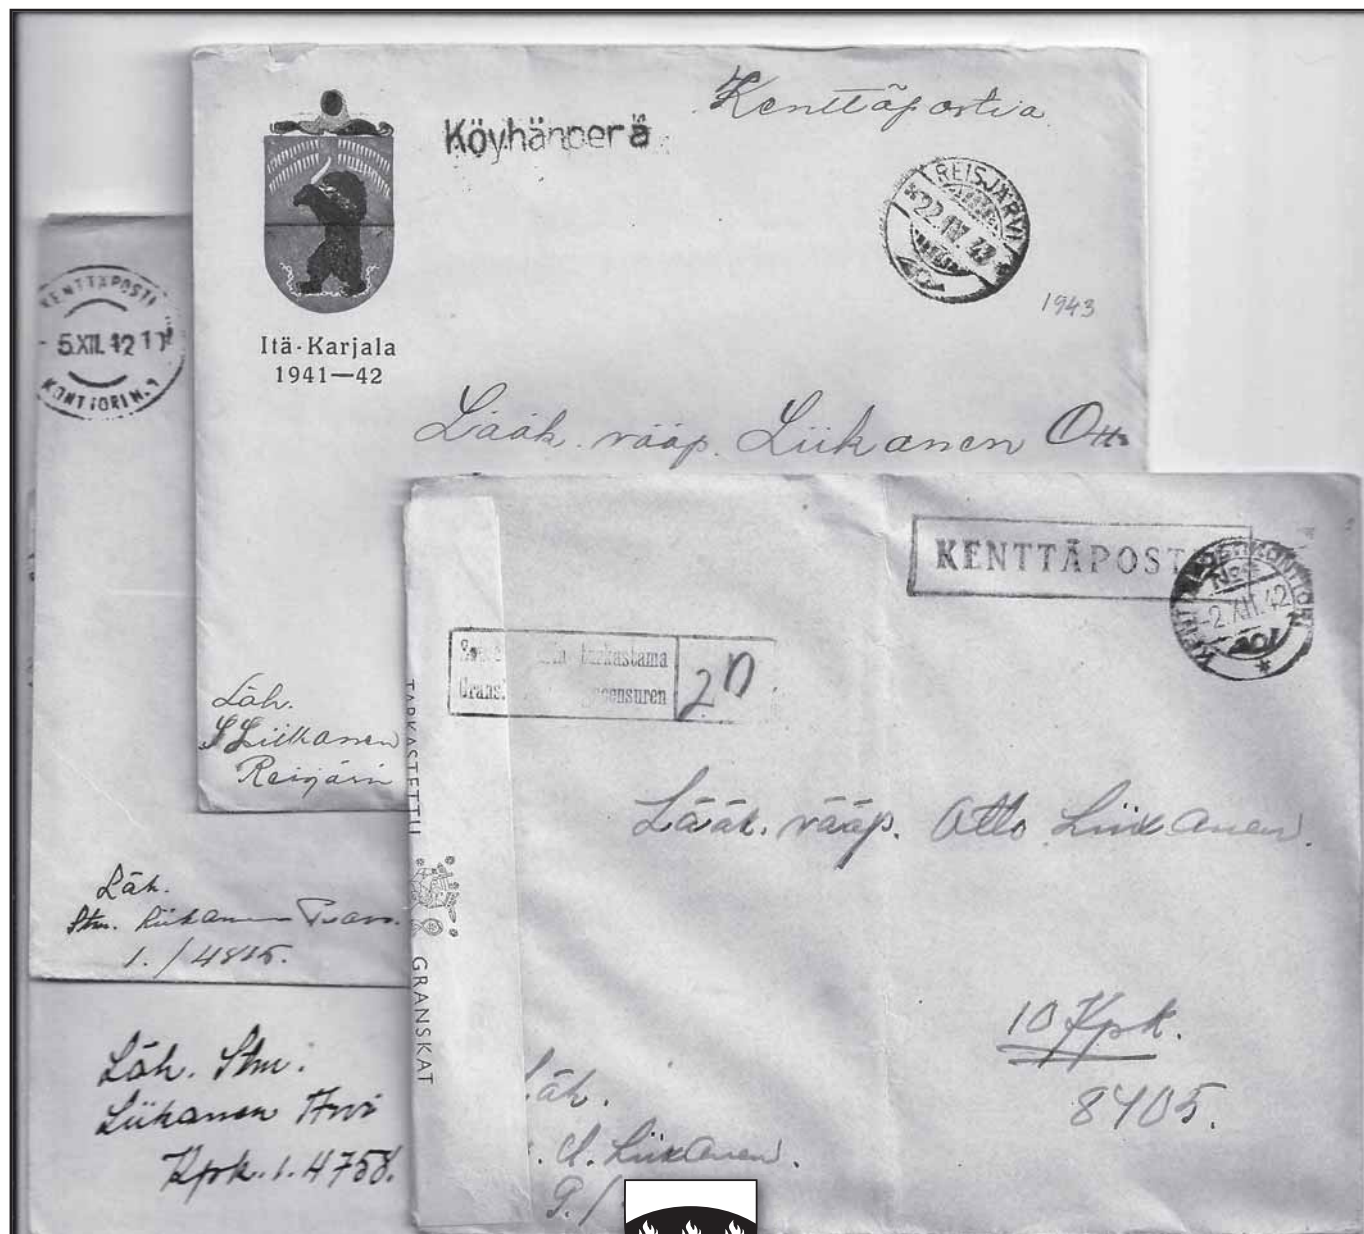 Kenttäpostia
Köyhänperä
REISJÄRVI
22.IV.43
1943
Itä-Karjala
1941—42
Lääk. vääp. Liikanen Otto
Läh.
S Liikanen
Reisjärvi
KENTTÄPOSTI
5.XII.42 17
KONTTORI N.
Läh.
Stm. Liikanen
1. / 4815.
Läh. Stm.
Liikanen Arvi
Kprk. 1. 4758.
KENTTÄPOST
KENTTÄPOSTIKONTTORI
-2.XII.42
tarkastama
censuren
2
TARKASTETTU
GRANSKAT
Lääk. vääp. Otto Liikanen.
10 Kprk.
8405.
Läh.
Liikanen.
9. /